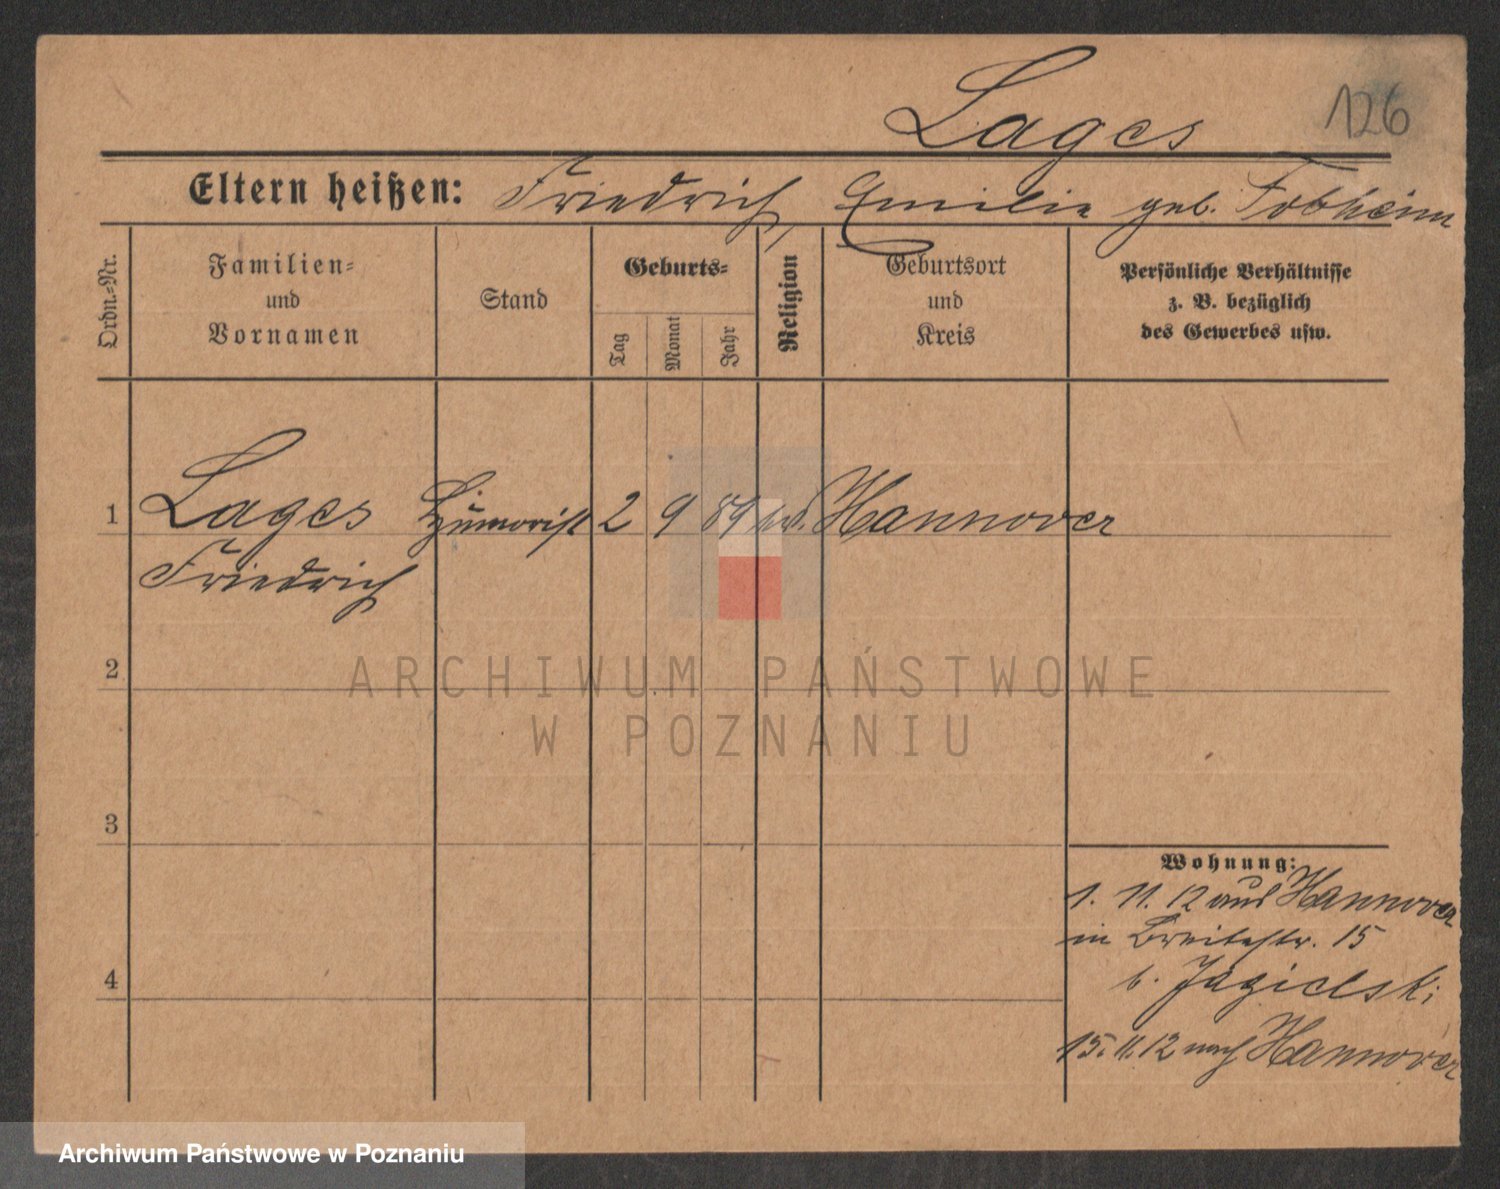 Lages
126
Eltern heißen: Friedrich, Emilie geb. Fobheim
Ordn.-Nr.
Familien-
und
Vornamen
Stand
Geburts-
Tag
Monat
Jahr
Religion
Geburtsort
und
Kreis
Persönliche Verhältnisse
z. B. bezüglich
des Gewerbes usw.
1
Lages Humorist 2 9 89 ev. Hannover
Friedrich
2
ARCHIWUM PAŃSTWOWE
W POZNANIU
3
Wohnung:
1. 11. 12 aus Hannover
in Breitestr. 15
b. Jagielski
4
15. 11. 12 nach Hannover
Archiwum Państwowe w Poznaniu